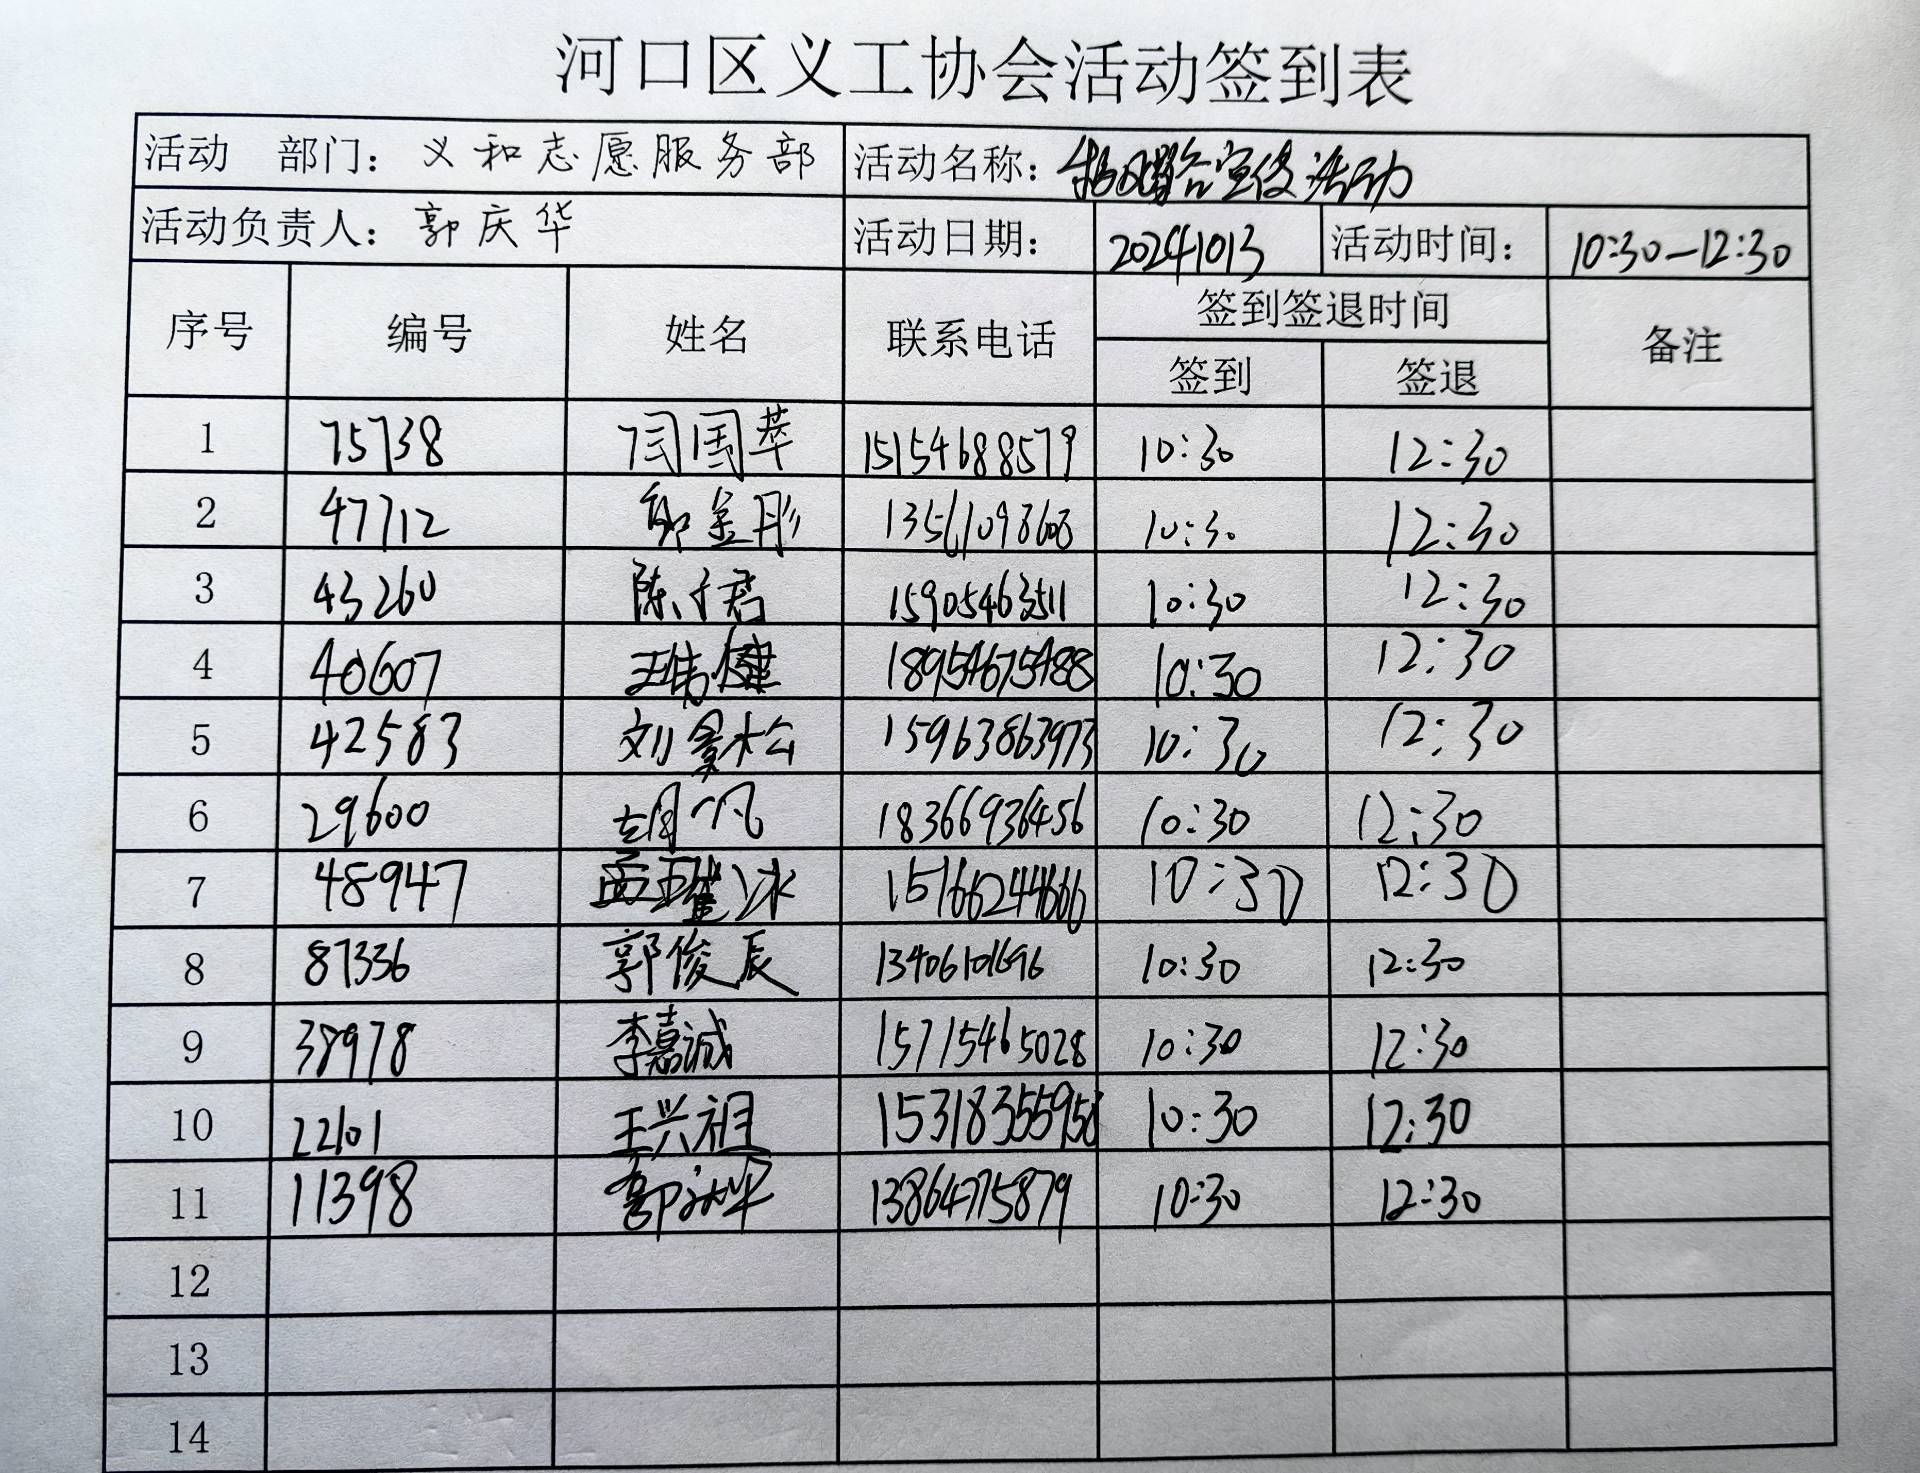 河口区义工协会活动签到表
活动 部门：义和志愿服务部 活动名称： 宣传活动
活动负责人：郭庆华 活动日期： 20241013 活动时间： 10:30—12:30
序号 编号 姓名 联系电话 签到签退时间 备注
签到 签退
1 75738 闫国苹 15154688579 10:30 12:30
2 47712 13561098608 10:30 12:30
3 43260 陈 君 15905463511 10:30 12:30
4 40607 王 健 18954675488 10:30 12:30
5 42583 刘 松 15963863973 10:30 12:30
6 29600 胡 凡 18366936456 10:30 12:30
7 48947 孟 冰 15166244666 10:30 12:30
8 87336 郭俊辰 13406101696 10:30 12:30
9 38978 李嘉诚 15715465028 10:30 12:30
10 22101 王兴祖 15318355958 10:30 12:30
11 11398 郭 华 13864775879 10:30 12:30
12
13
14